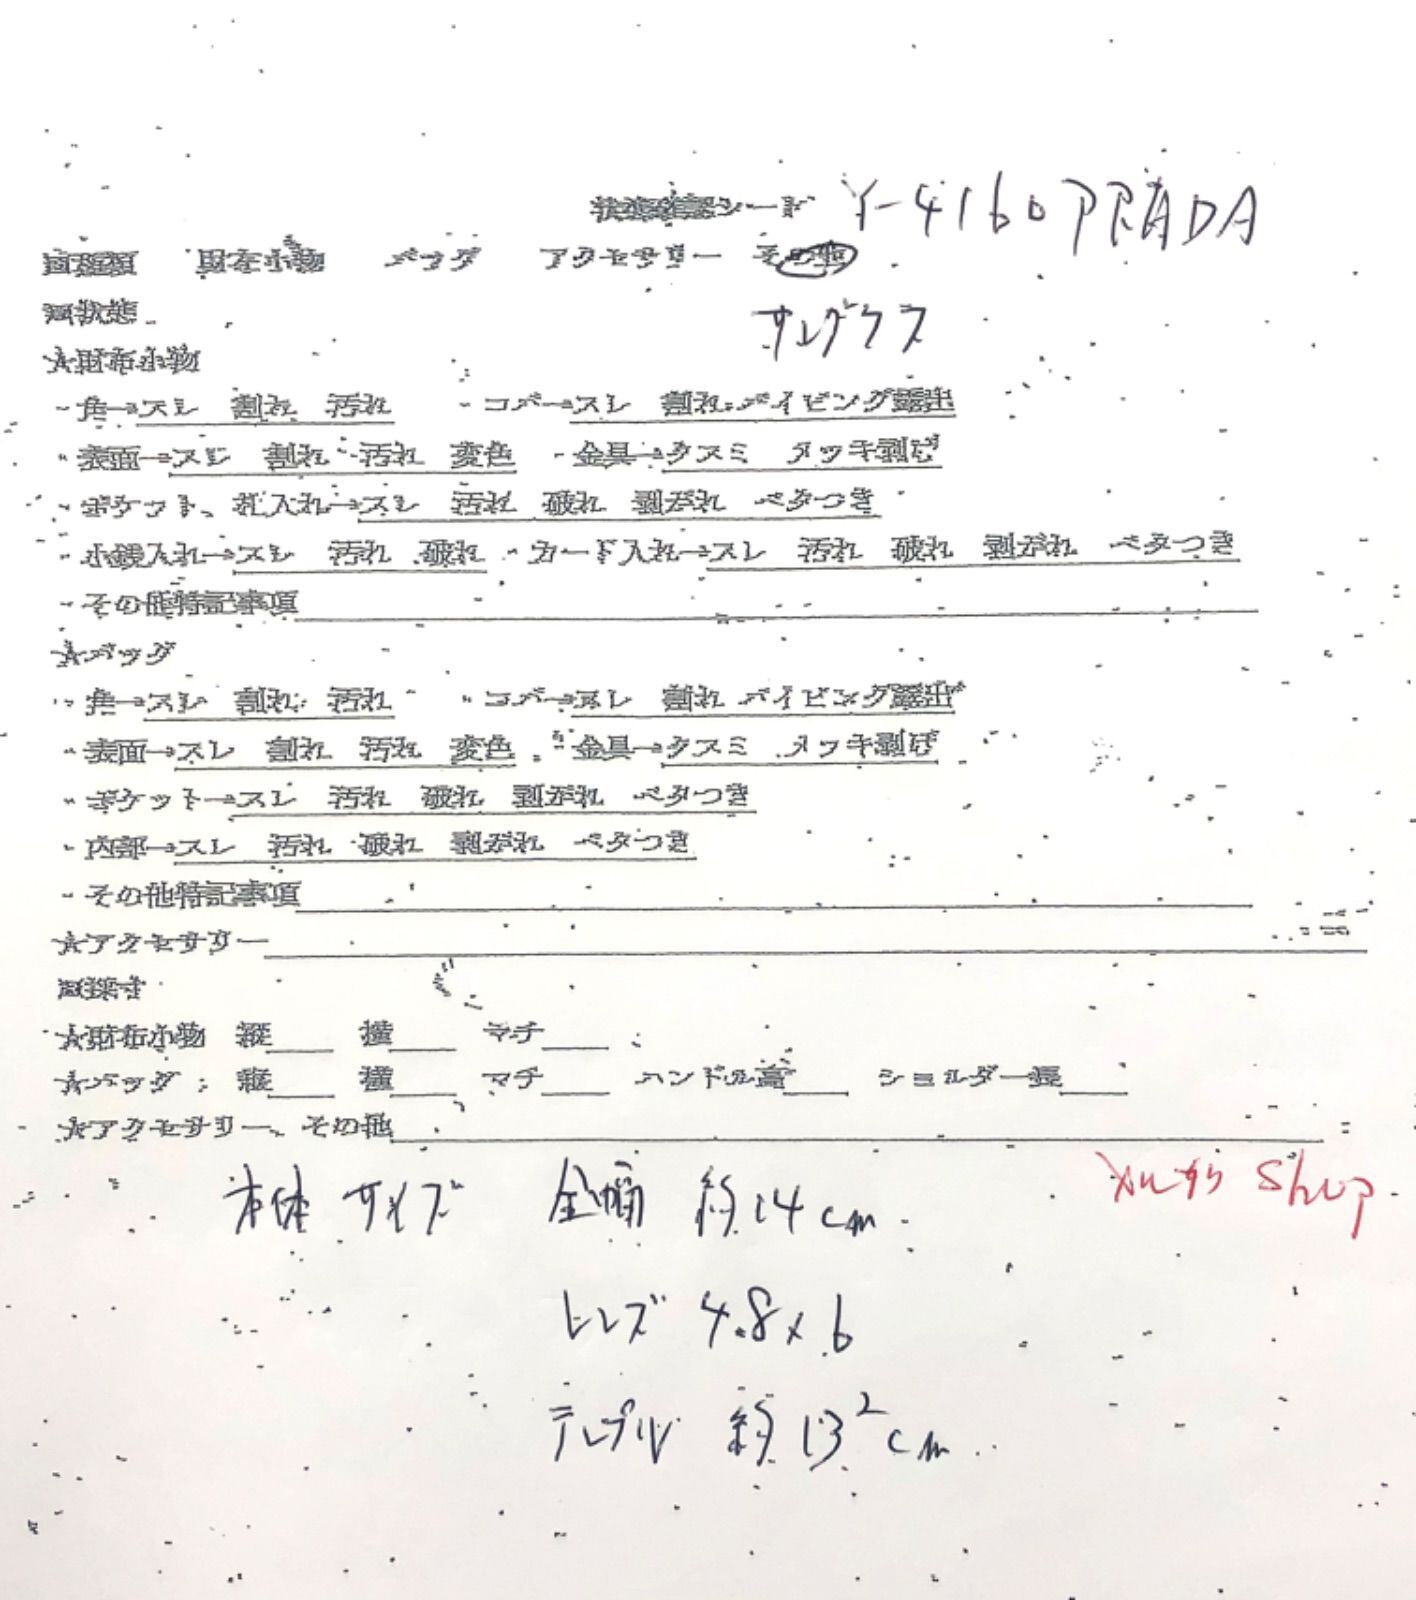 状態確認シート Y-4160 PRADA
□種類 財布小物 バッグ アクセサリー その他
サングラス
□状態
★財布小物
・角→スレ 割れ 汚れ ・コバ→スレ 割れ パイピング露出
・表面→スレ 割れ 汚れ 変色 ・金具→クスミ メッキ剥げ
・ポケット、札入れ→スレ 汚れ 破れ 剥がれ ベタつき
・小銭入れ→スレ 汚れ 破れ ・カード入れ→スレ 汚れ 破れ 剥がれ ベタつき
・その他特記事項
★バッグ
・角→スレ 割れ 汚れ ・コバ→スレ 割れ パイピング露出
・表面→スレ 割れ 汚れ 変色 ・金具→クスミ メッキ剥げ
・ポケット→スレ 汚れ 破れ 剥がれ ベタつき
・内部→スレ 汚れ 破れ 剥がれ ベタつき
・その他特記事項
★アクセサリー
□採寸
★財布小物 縦 横 マチ
★バッグ 縦 横 マチ ハンドル高 ショルダー長
★アクセサリー、その他
メルカリ Shop
本体サイズ 全幅 約14cm
レンズ 4.8×6
テンプル 約13²cm